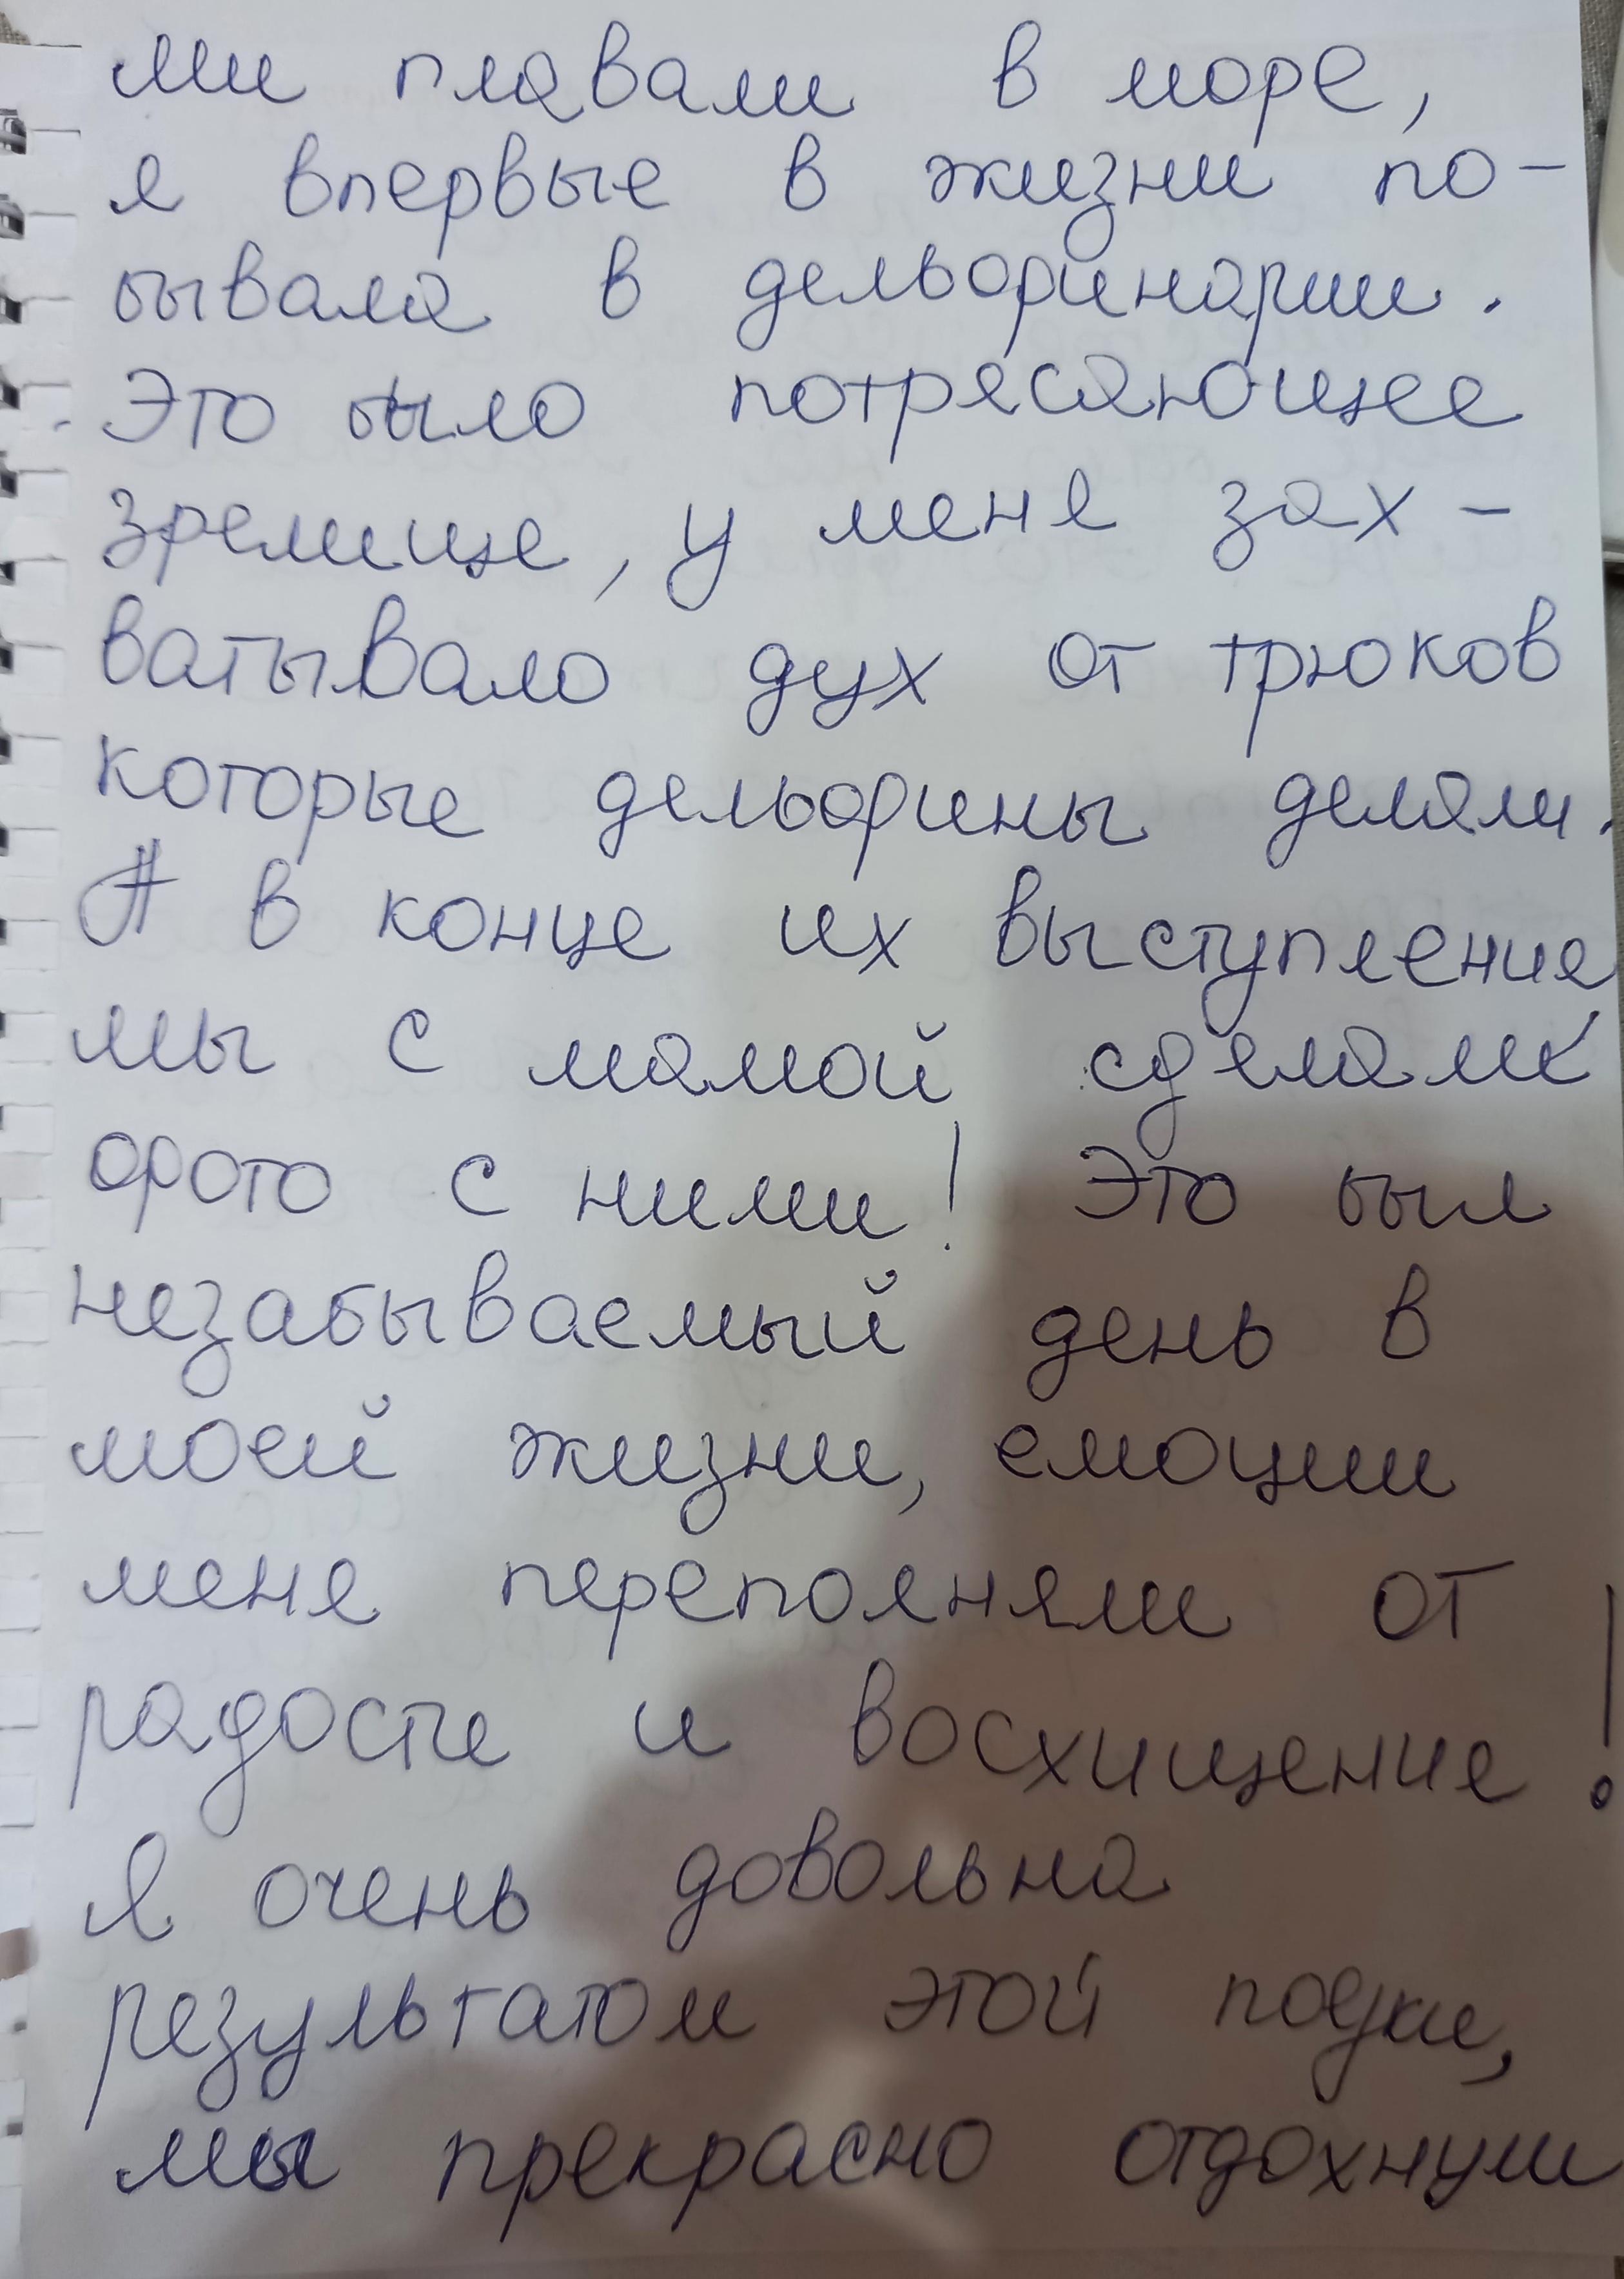 ми плавали в море,
я впервые в жизни по-
бывала в дельфинарии.
Это было потрясающее
зрелище, у меня зах-
ватывало дух от трюков
которые дельфины делали.
А в конце их выступление
мы с мамой сделали
фото с ними! Это был
незабываемый день в
моей жизни, емоции
меня переполняли от
радосте и восхищение!
Я очень довольна
результатом этой
мы прекрасно отдохнули